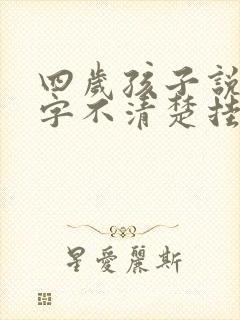 四歲孩子說
字不清楚挂
星愛麗斯